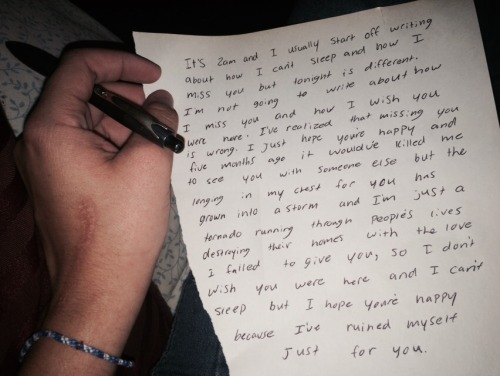 It's 2am and I usually start off writing
about how I can't sleep and how I
miss you but tonight is different.
I'm not going to write about how
I miss you and how I wish you
were here. I've realized that missing you
is wrong. I just hope you're happy and
five months ago it would've killed me
to see you with someone else but the
longing in my chest for you has
grown into a storm and I'm just a
tornado running through people's lives
destroying their homes with the love
I failed to give you, so I don't
wish you were here and I can't
sleep but I hope you're happy
because I've ruined myself
just for you.